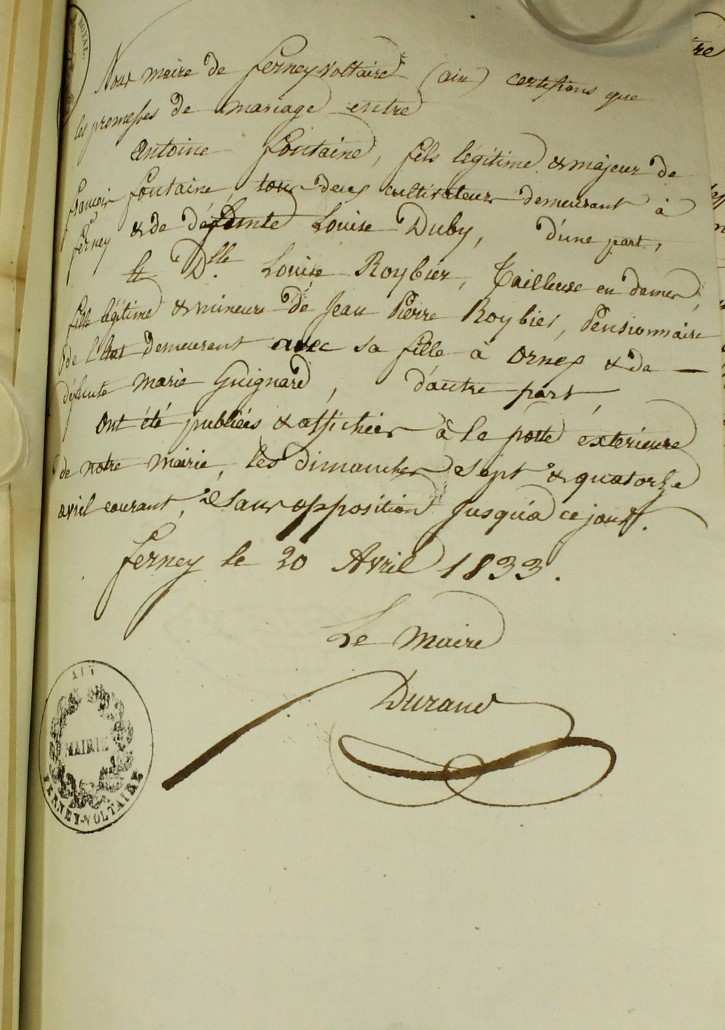 ROYAL.
Nous maire de Ferney-Voltaire (ain) certifions que
les promesses de mariage entre
Antoine Fontaine, fils légitime & majeur de
françois Fontaine tous deux cultivateurs demeurant à
ferney & de défunte Louise Duby, d'une part,
& Dlle Louise Roybier, Tailleuse en dames,
fille légitime & mineure de Jean Pierre Roybier, Pensionnaire
de l'Etat demeurant avec sa fille à Ornex & de —
défunte Marie Guignard, d'autre part,
ont été publiées & affichées à la porte extérieure
de notre mairie, les dimanches sept & quatorze
avril courant, sans opposition jusqu'à ce jour.
Ferney le 20 Avril 1833.
Le Maire
Durand
AIN
MAIRIE
FERNEY-VOLTAIRE